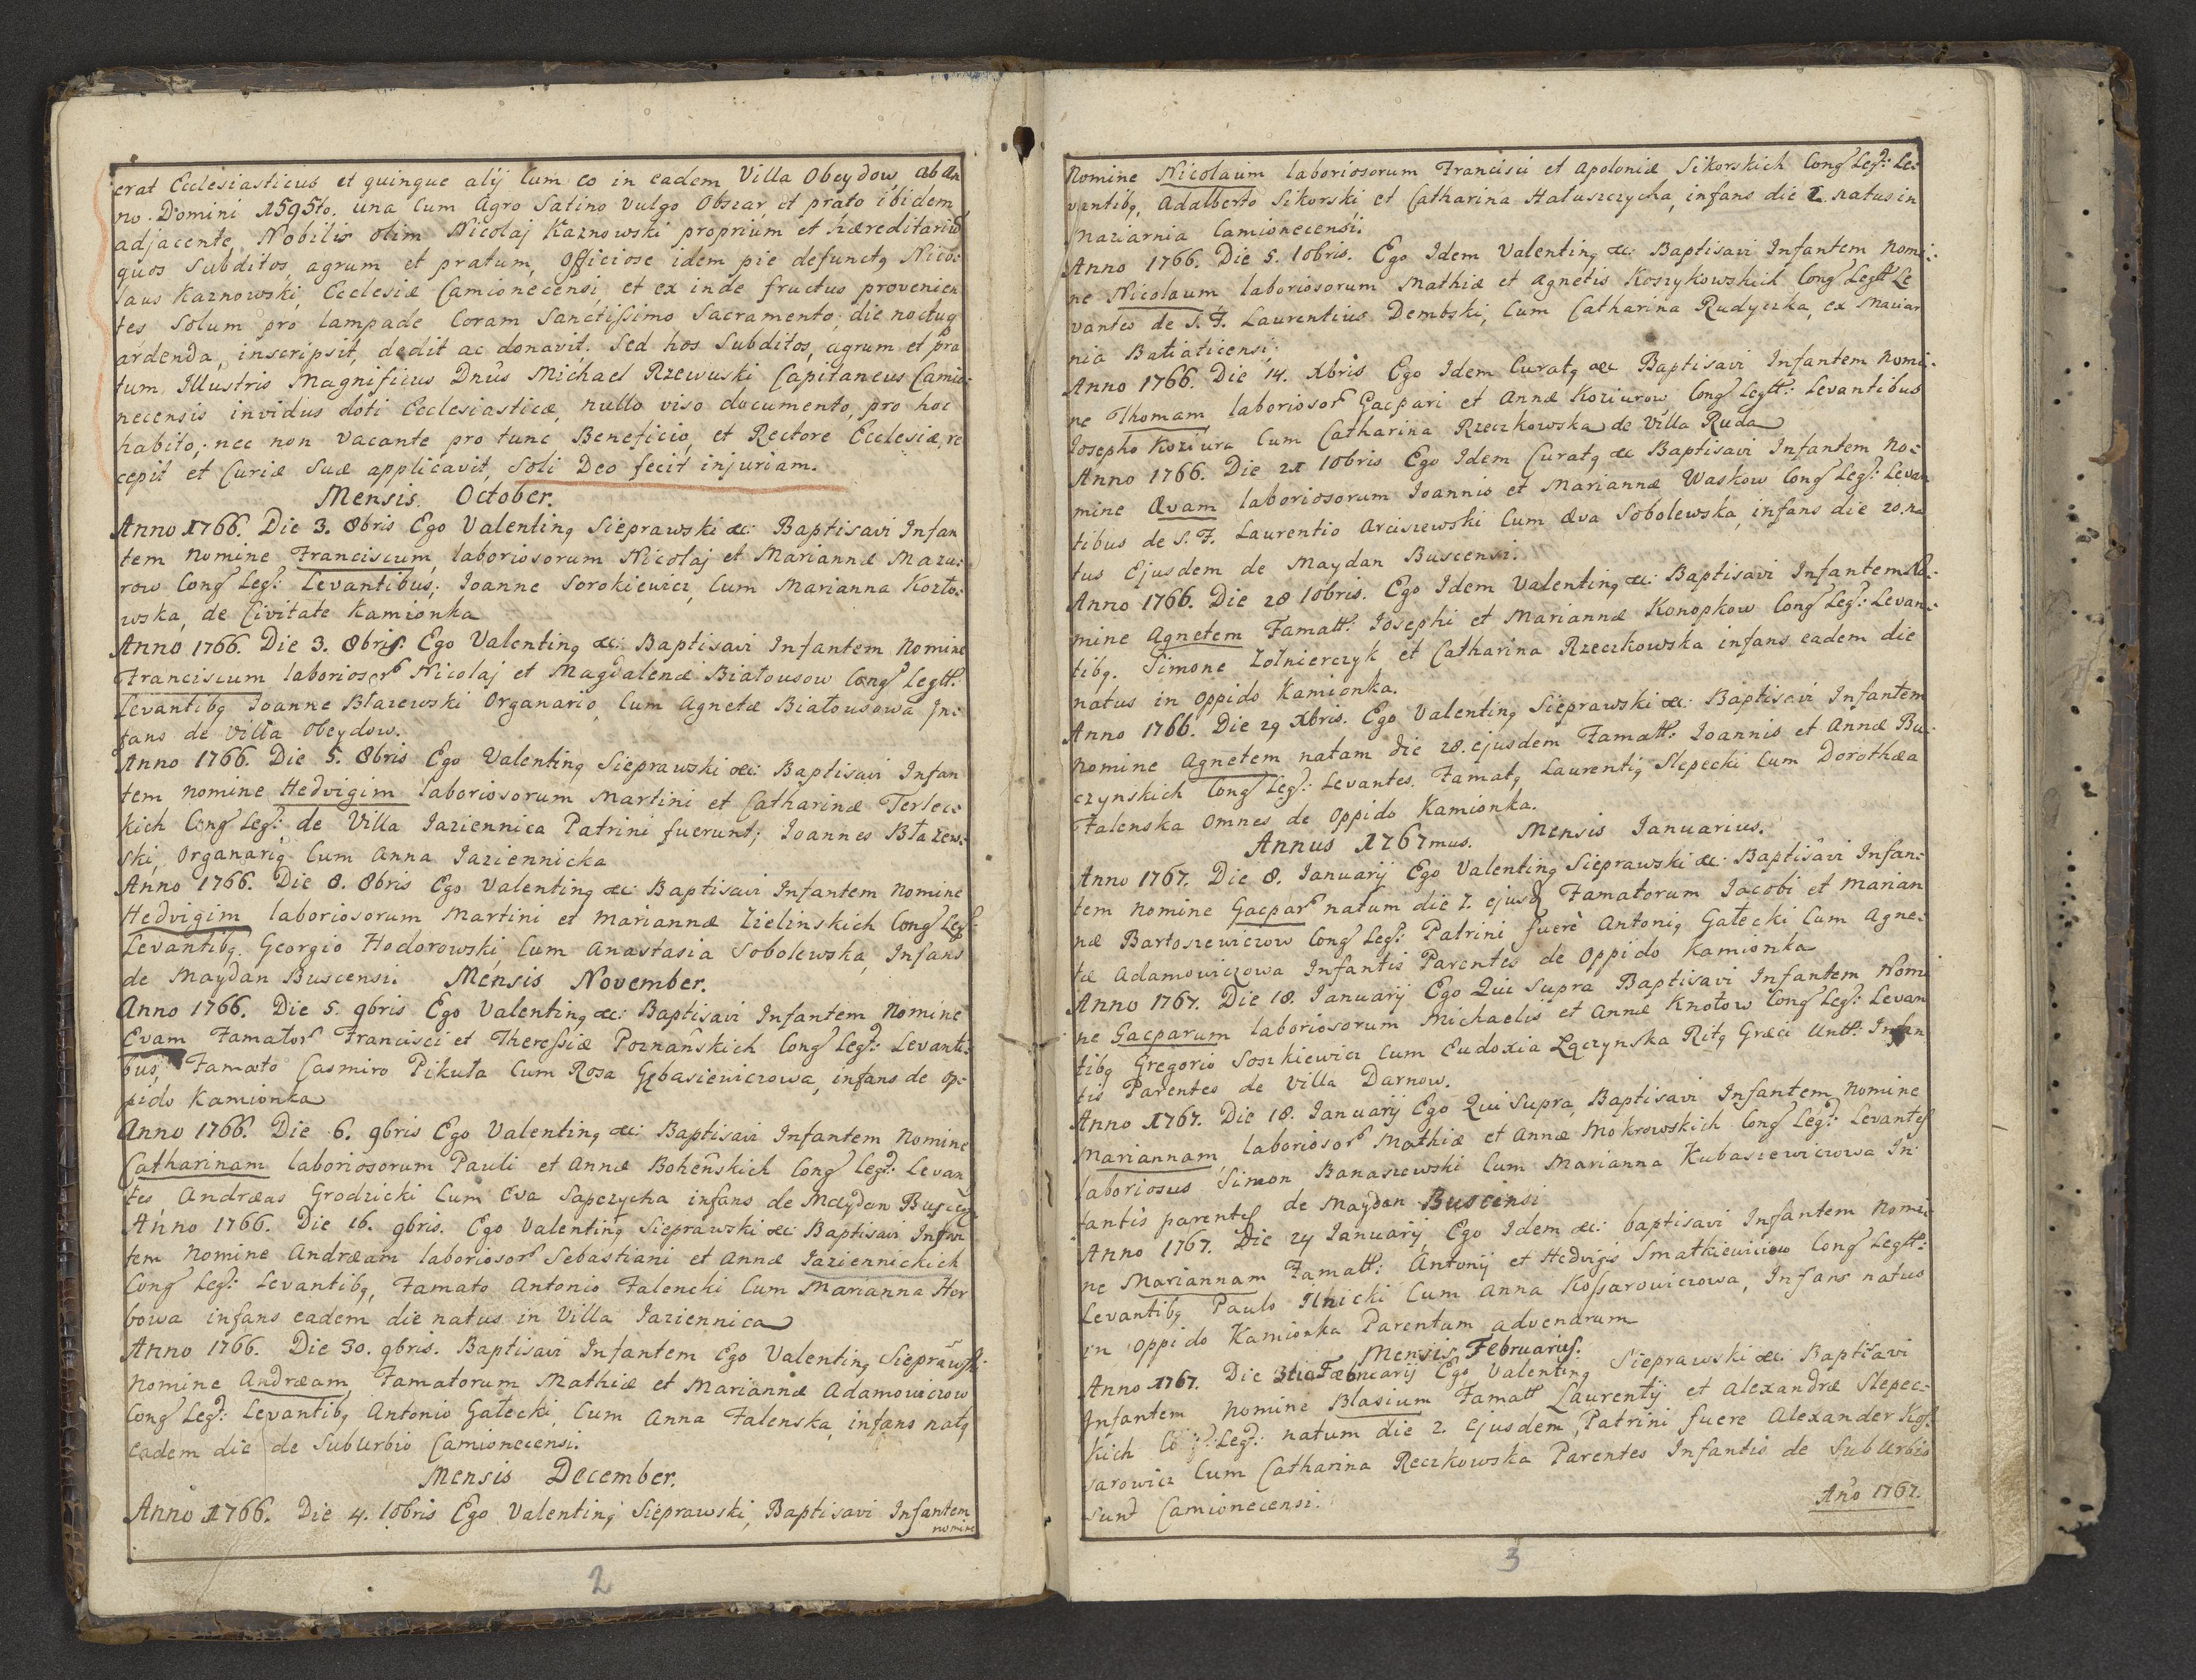 erat Ecclesiasticus et quinque alij cum eo in eadem Villa Obeydow ab An
no Domini 1595to. una cum Agro Satino Vulgo Obszar, et prato ibidem
adjacente, Nobilis olim Nicolaj Kaznowski proprium et hæreditariũ
quos Subditos, agrum et pratum, Officiose idem pie defunctq Nico:
laus Kaznowski, Ecclesiæ Camionecensi, et ex inde fructus provenien
tes Solum pro lampade Coram Sanctissimo Sacramento, die noctuq
ardenda, inscripsit, dedit ac donavit. Sed hos Subditos, agrum et pra
tum Illustris Magnificus Dnûs Michael Rzewuski Capitaneus Camio:
necensis invidus doti Ecclesiasticæ, nullo viso documento, pro hoc
habito; nec non vacante pro tunc Beneficio, et Rectore Ecclesiæ, re
cepit et Curiæ Suæ applicavit, Soli Deo fecit injuriam.
Mensis October.
Anno 1766. Die 3. 8bris Ego Valentinq Sieprawski &c: Baptisavi Infan
tem Nomine Franciscum, laboriosorum Nicolaj et Mariannæ Mazu:
row Cong Leg: Levantibus; Joanne Sorokiewicz, cum Marianna Kozło:
wska, de Civitate Kamionka
Anno 1766. Die 3. 8bris: Ego Valentinq &c: Baptisavi Infantem Nomine
Franciscum laboriosor Nicolaj et Magdalenæ Białousow Cong Legtt:
Levantibq Joanne Błazewski Organario, Cum Agneta Białousowa In:
fans de Villa Obeydow.
Anno 1766. Die 5. 8bris Ego Valentinq Sieprawski &c: Baptisavi Infan
tem nomine Hedvigim laboriosorum Martini et Catharinæ Terlec:
kich Cong Leg: de Villa Jaziennica Patrini fuerunt; Joannes Błazew:
ski, Organariq Cum Anna Jaziennicka
Anno 1766. Die 8. 8bris Ego Valentinq &c: Baptisavi Infantem Nomine
Hedvigim laboriosorum Martini et Mariannæ Zielinskich Cong Leg:
Levantibq. Georgio Hodorowski, Cum Anastasia Sobolewska, Infans
de Maydan Buscensi. Mensis November.
Anno 1766. Die 5. 9bris Ego Valentinq &c: Baptisavi Infantem Nomine
Evam Famator Francisci et Theressiæ Poznańskich Cong Legt: Levanti:
bus, Famato Casmiro Pikuła Cum Rosa Gębasiewiczowa, infans de Op:
pido Kamionka
Anno 1766. Die 6. 9bris Ego Valentinq &c: Baptisavi Infantem Nomine
Catharinam laboriosorum Pauli et Annæ Boheńskich Cong Legt: Levan
tes, Andræas Grodzicki Cum Eva Sapczycha infans de Maydan Buscen
Anno 1766. Die 16. 9bris. Ego Valentinq Sieprawski &c: Baptisavi Infan
tem Nomine Andræam laboriosor Sebastiani et Annæ Jaziennickich
Cong Leg: Levantibq, Famato Antonio Falencki Cum Marianna Hor
bowa infans eadem die natus in Villa Jaziennica
Anno 1766. Die 30. 9bris. Baptisavi Infantem Ego Valentinq Sieprawski
Nomine Andræam, Famatorum Mathiæ et Mariannæ Adamowiczow
Cong Legt: Levantibq Antonio Gałecki, Cum Anna Falenska, infans natq
eadem die de Suburbio Camionecensi.
Mensis December.
Anno 1766. Die 4. 10bris Ego Valentinq Sieprawski, Baptisavi Infantem
nomine
2
Nomine Nicolaum laboriosorum Francisci et Apoloniæ Sikorskich Cong Leg: Le:
vantibq, Adalberto Sikorski et Catharina Hałuszczycha, infans die natus in
Maziarnia Camionecensi.
Anno 1766. Die 5. 10bris. Ego Idem Valentinq &c: Baptisavi Infantem Nomi:
ne Nicolaum laboriosorum Mathiæ et Agnetis Koszykowskich Cong Legtt Le
vantes de S. F. Laurentius Dembski, Cum Catharina Rudyczka, ex Maziar
nia Batiaticensi.
Anno 1766. Die 14. Xbris Ego Idem Curatq &c Baptisavi Infantem Nomi:
ne Thomam laboriosor Gaspari et Annæ Koziurow Cong Legtt: Levantibus
Josepho Koziura Cum Catharina Rzeczkowska de Villa Ruda
Anno 1766. Die 21 10bris Ego Idem Curatq &c Baptisavi Infantem No:
mine Ævam laboriosorum Joannis et Mariannæ Waskow Cong Leg: Levan
tibus de S. F. Laurentio Arciszewski Cum Æva Sobolewska, infans die 20. na
tus Ejusdem de Maydan Buscensi.
Anno 1766. Die 28 10bris. Ego Idem Valentinq &c: Baptisavi Infantem No:
mine Agnetem Famatt: Josephi et Mariannæ Konopkow Cong Leg: Levan:
tibq. Simone Zołnierczyk, et Catharina Rzeczkowska infans eadem die
natus in Oppido Kamionka.
Anno 1766. Die 29 Xbris. Ego Valentinq Sieprawski &c: Baptisavi Infantem
Nomine Agnetem natam die 28. ejusdem Famatt: Joannis et Annæ Bu:
czynskich Cong Leg: Levantes. Famatq Laurentiq Slepecki Cum Dorothæa
Falenska Omnes de Oppido Kamionka.
Annus 1767mus. Mensis Januarius.
Anno 1767. Die 8. Januarij Ego Valentinq Sieprawski &c: Baptisavi Infan:
tem Nomine Gaspar natum die 7. ejusd Famatorum Jacobi et Marian
næ Bartoszewiczow Cong Leg: Patrini fuerè Antoniq Gałecki Cum Agne:
ta Adamowiczowa Infantis Parentes de Oppido Kamionka
Anno 1767. Die 18. Januarij Ego Qui Supra Baptisavi Infantem Nomi
ne Gasparum laboriosorum Michaelis et Annæ Knotow Cong Leg: Levan
tibq Gregorio Soszkiewicz Cum Eudoxia Łączynska Ritq Græci Untt: Infan
tis Parentes de Villa Darnow.
Anno 1767. Die 18. Januarij Ego Qui Supra, Baptisavi Infantem Nomine
Mariannam, laboriosor Mathiæ et Annæ Mokrowskich Cong Leg: Levantes
laboriosus Simon Banaszewski Cum Marianna Kubaszewiczowa In
fantis parentes de Maydan Buscensi
Anno 1767. Die 24 Januarij Ego Idem &c: baptisavi Infantem Nomi
ne Mariannam Famatt: Antonij et Hedvigis Smatkiewiczow Cong Legtt:
Levantibq Paulo Ilnicki Cum Anna Kossarowiczowa, Infans natus
in Oppido Kamionka Parentum advenarum
Mensis Februarius.
Anno 1767. Die 3tia Fæbruarij Ego Valentinq Sieprawski &c: Baptisavi
Infantem Nomine Blasium Famatt Laurentij et Alexandræ Slepec:
kich Leg: natum die 2. ejusdem, Patrini fuere Alexander Kos
sarowicz Cum Catharina Reczkowska Parentes Infantis de SubUrbio
Sunt Camionecensi.
Año 1767.
3